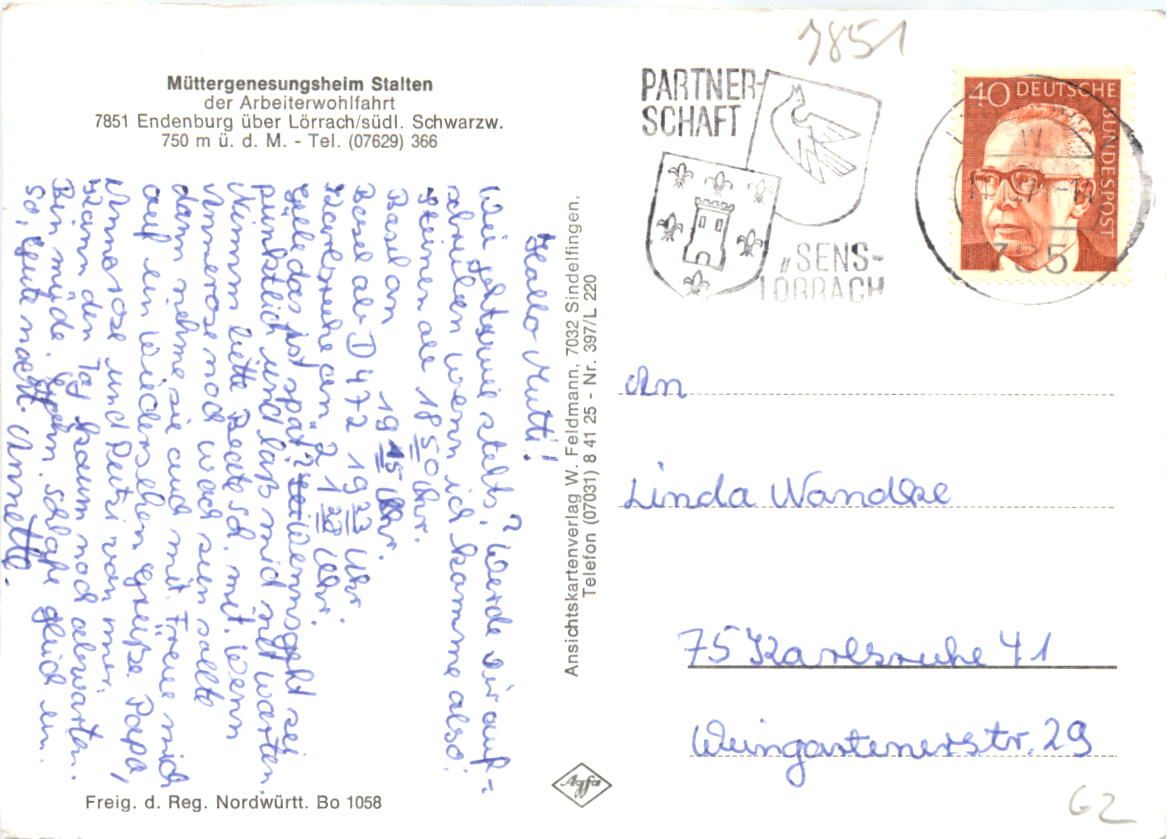 Müttergenesungsheim Stalten
der Arbeiterwohlfahrt
7851 Endenburg über Lörrach/südl. Schwarzw.
750 m ü. d. M. - Tel. (07629) 366
Hallo Mutti!
Wie gehts? Werde Dir auf-
schreiben wenn ich komme also:
Steinen ab 18 50 Uhr.
Basel an 19 15 Uhr.
Basel ab D 472 19 23 Uhr.
Karlsruhe an 21 Uhr.
gelle das ist spät? Wenns geht sei
pünktlich und laß mich nit warten.
Nimm bitte Beate sch. mit. Wenn
Annerose noch wach sein sollte
dann nehme sie auch mit. Freue mich
auf ein Wiedersehen grüße Papa,
Annerose und Putzi von mir.
Kann den Tag kaum noch abwarten.
Bin müde. schlafe gleich ein.
So, gute nacht. Annette.
Ansichtskartenverlag W. Feldmann, 7032 Sindelfingen,
Telefon (07031) 8 41 25 - Nr. 397/L 220
Freig. d. Reg. Nordwürtt. Bo 1058
Agfa
7851
PARTNER-
SCHAFT
SENS-
LÖRRACH
40 DEUTSCHE
BUNDESPOST
785
An
Linda Wandke
75 Karlsruhe 41
Weingartenerstr. 29
G2